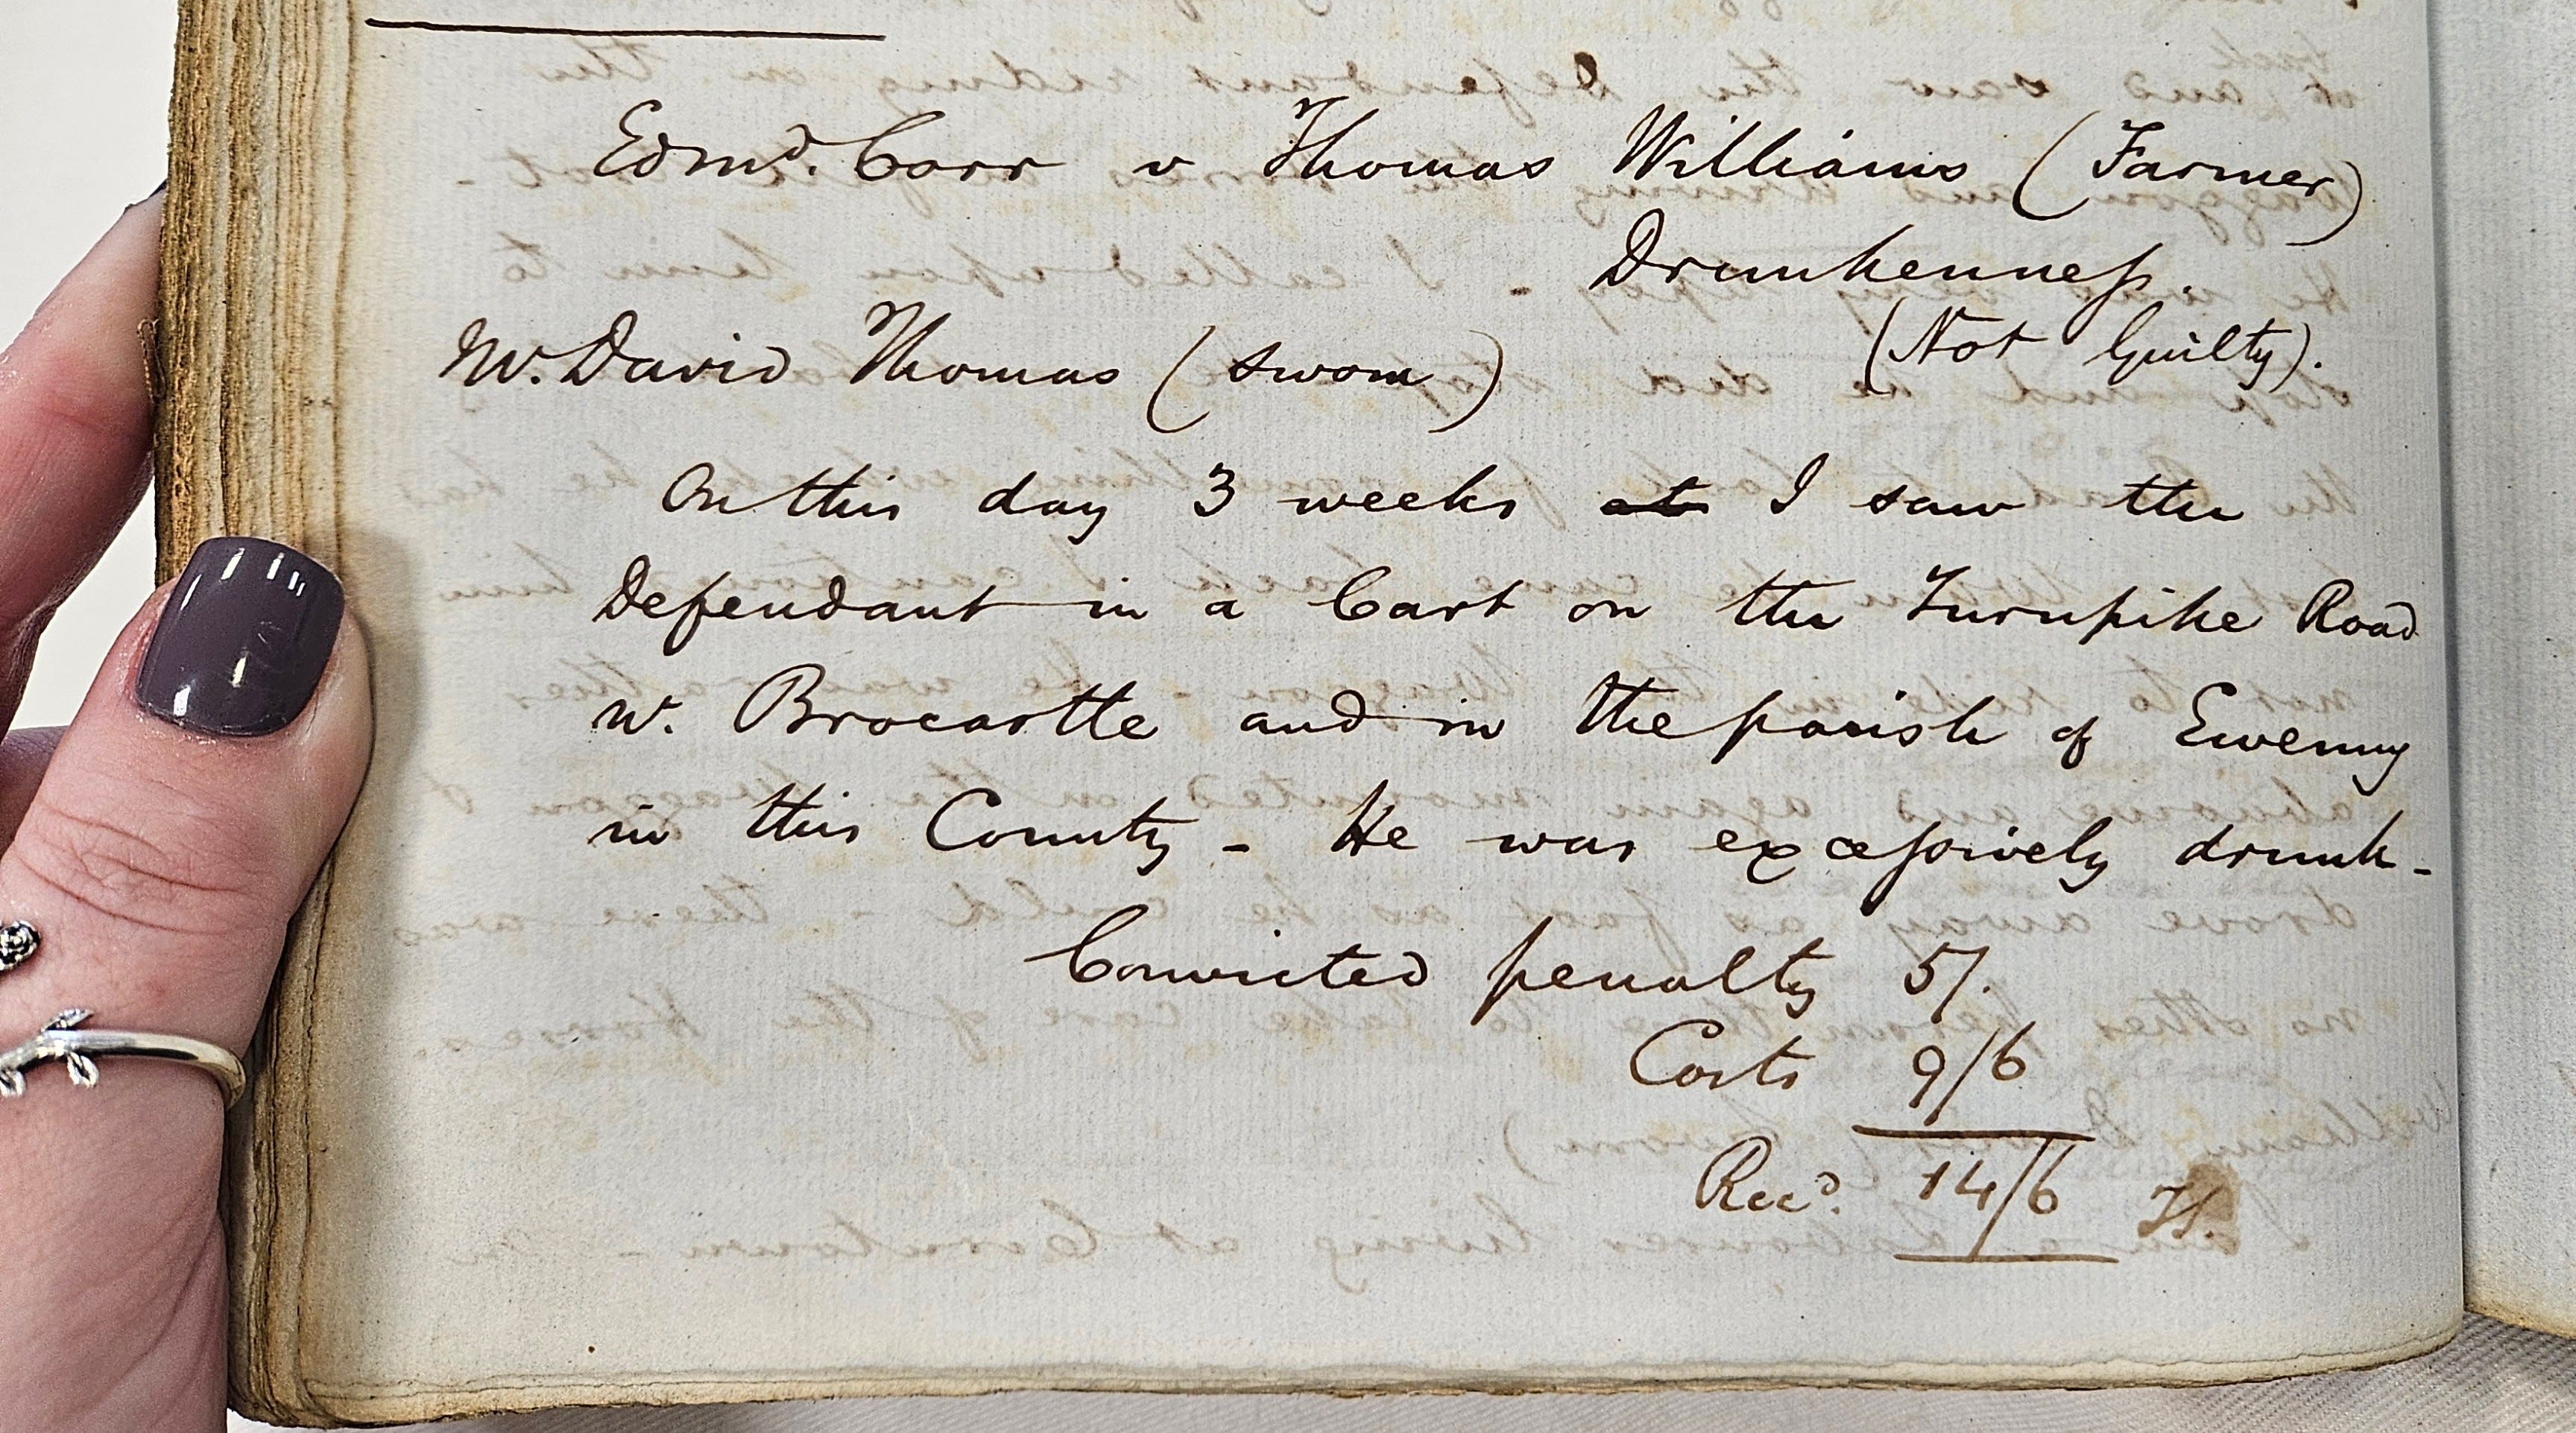 Edmd. Corr v Thomas Williams (Farmer)
Drunkenness.
(Not Guilty).
W. David Thomas (sworn)
On this day 3 weeks at I saw the
Defendant in a Cart on the Turnpike Road
nr. Brocastle and in the parish of Ewenny
in this County - He was excessively drunk -
Convicted penalty 5/.
Costs 9/6
Recd. 14/6 H.